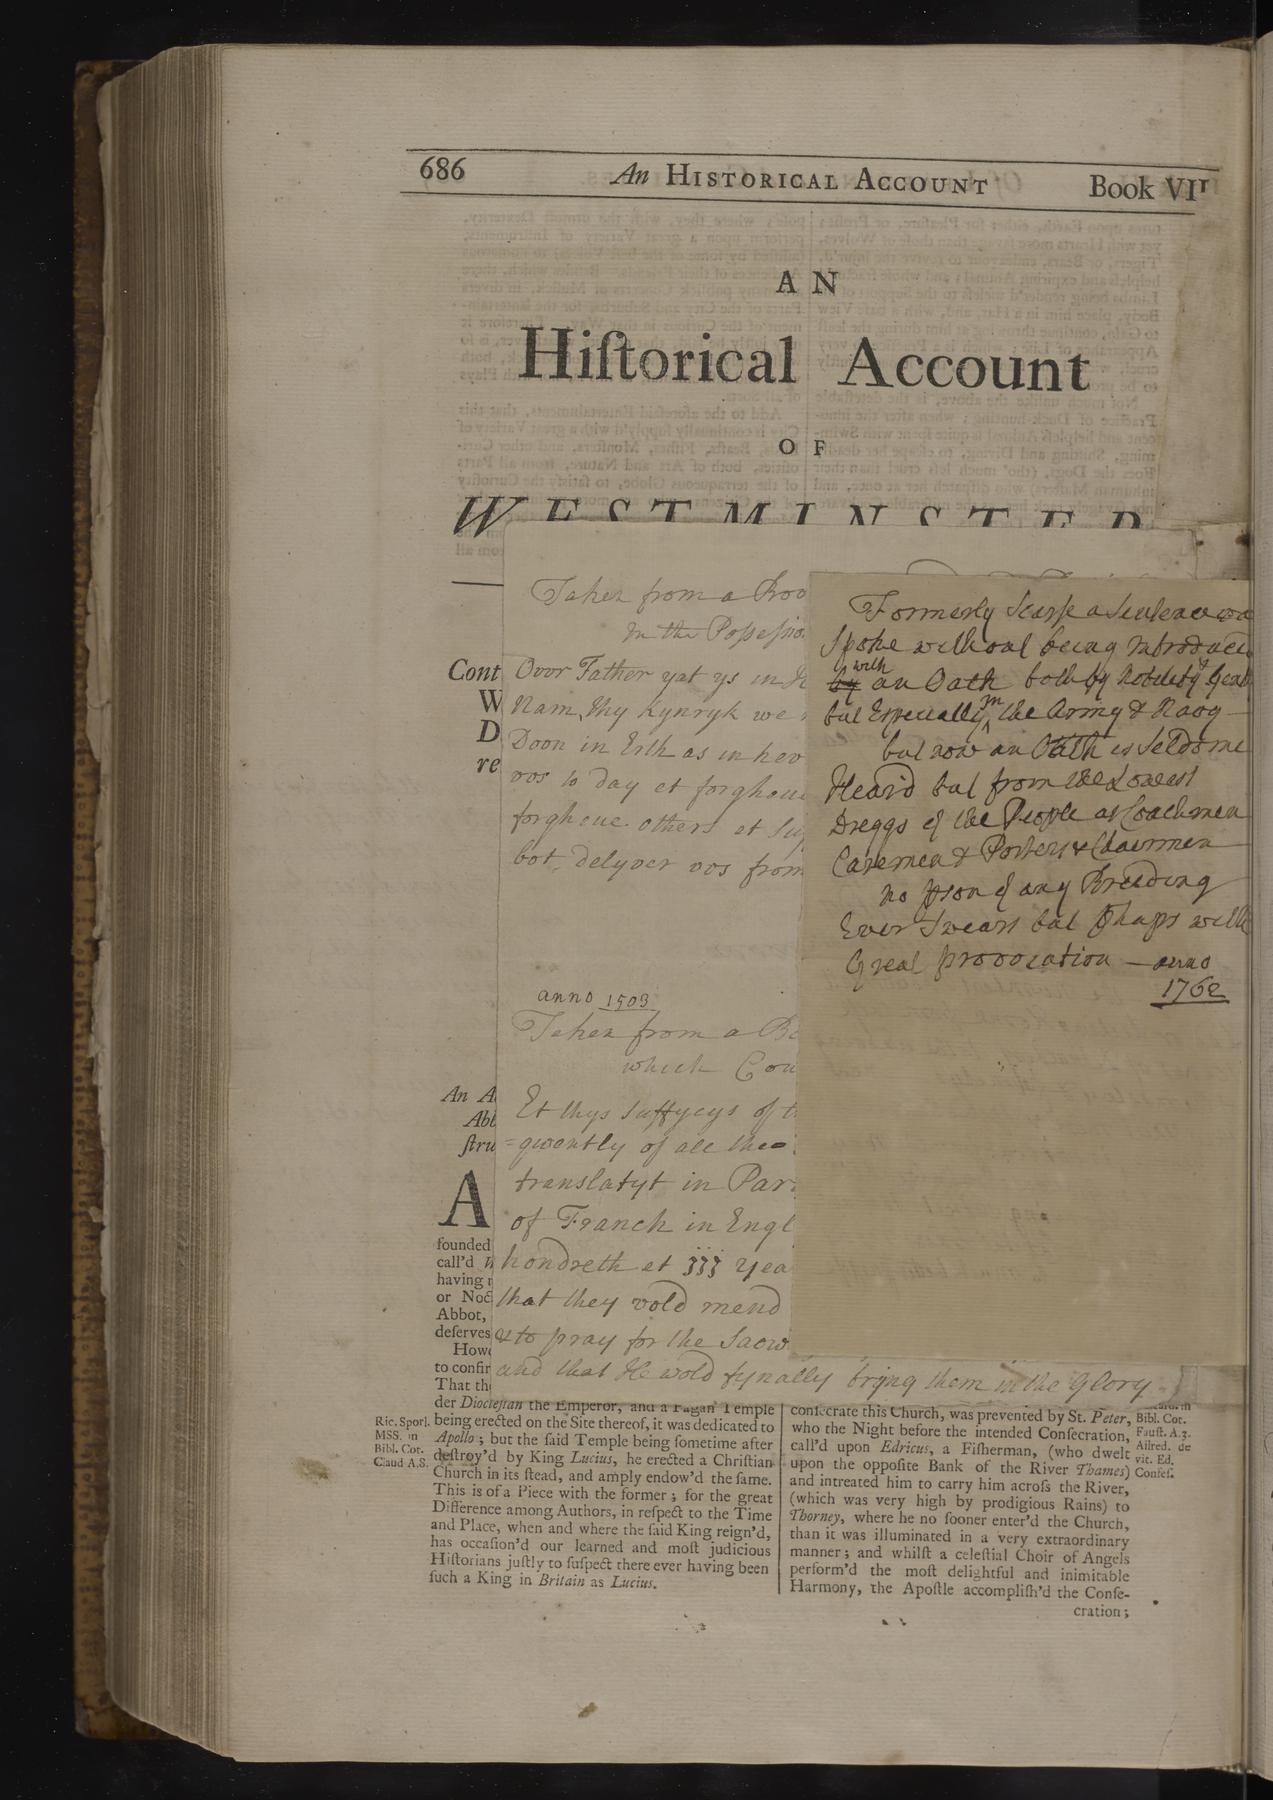 686
An HISTORICAL ACCOUNT
Book VII
AN
Hiſtorical Account
OF
WESTMINSTER
Taken from a Boo
in the Possessio
Ovor Father yat ys in H
Nam, thy Kynryk we
Doon in Erth as in hev
vos to day et forgheue
forgheue others et
bot delyver vos from
anno 1503
Taken from a Bo
which Con
Et thys suffycys of t
=qwently of all the
translatyt in Par
of Franch in Engl
hondreth et iij yea
that they vold mend
& to pray for the Saow
and that He wold fynally bryng them in the Glory
Formerly scarse a sentence wa
spoke without being introduced
by with an Oath both by Nobility & Gent
but Especially in the Army & Navy
but now an Oath is Seldome
Heard but from the Lowest
Dreggs of the People as Coachmen
Caremen & Porters & Chairmen
no pson of any Breeding
Ever Swears but phaps with
Great provocation — anno
1762
Cont
W
D
re
An A
Abb
ſtru
A
founded
call'd
having
or Noct
Abbot,
deſerves
How
to confir
That th
der Diocleſian the Emperor, and a Pagan Temple
being erected on the Site thereof, it was dedicated to
Apollo; but the ſaid Temple being ſometime after
deſtroy'd by King Lucius, he erected a Chriſtian
Church in its ſtead, and amply endow'd the ſame.
This is of a Piece with the former; for the great
Difference among Authors, in reſpect to the Time
and Place, when and where the ſaid King reign'd,
has occaſion'd our learned and moſt judicious
Hiſtorians juſtly to ſuſpect there ever having been
ſuch a King in Britain as Lucius.
Ric. Sporl.
MSS. in
Bibl. Cot.
Claud A.8.
conſecrate this Church, was prevented by St. Peter,
who the Night before the intended Conſecration,
call'd upon Edricus, a Fiſherman, (who dwelt
upon the oppoſite Bank of the River Thames)
and intreated him to carry him acroſs the River,
(which was very high by prodigious Rains) to
Thorney, where he no ſooner enter'd the Church,
than it was illuminated in a very extraordinary
manner; and whilſt a celeſtial Choir of Angels
perform'd the moſt delightful and inimitable
Harmony, the Apoſtle accompliſh'd the Conſe-
cration;
Bibl. Cot.
Fauſt. A.3.
Ailred. de
vit. Ed.
Confeſ.